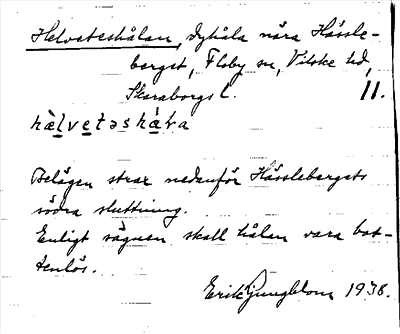 Helvateshålan, dyhåla nära Hässle-
berget, Floby sn, Vilske hd,
Skaraborgs l. 11.
hàlvetəshàḷa
Belägen strax nedanför Hässlebergets
södra sluttning.
Enligt sägnen skall hålan vara bot-
tenlös.
Erik Ljungblom 1938.